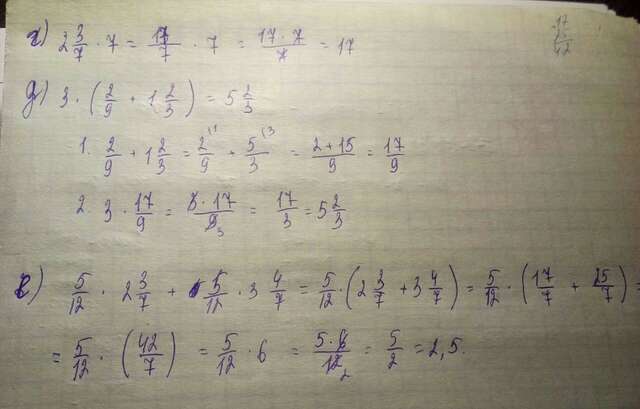 г) 2 3/7 · 7 = 17/7 · 7 = 17·7/7 = 17
д) 3 · (2/9 + 1 2/3) = 5 2/3
1. 2/9 + 1 2/3 = 2/9 + 5/3 = 2+15/9 = 17/9
2. 3 · 17/9 = 3·17/9 = 17/3 = 5 2/3
е) 5/12 · 2 3/7 + 5/12 · 3 4/7 = 5/12 · (2 3/7 + 3 4/7) = 5/12 · (17/7 + 25/7) =
= 5/12 · (42/7) = 5/12 · 6 = 5·6/12 = 5/2 = 2,5.